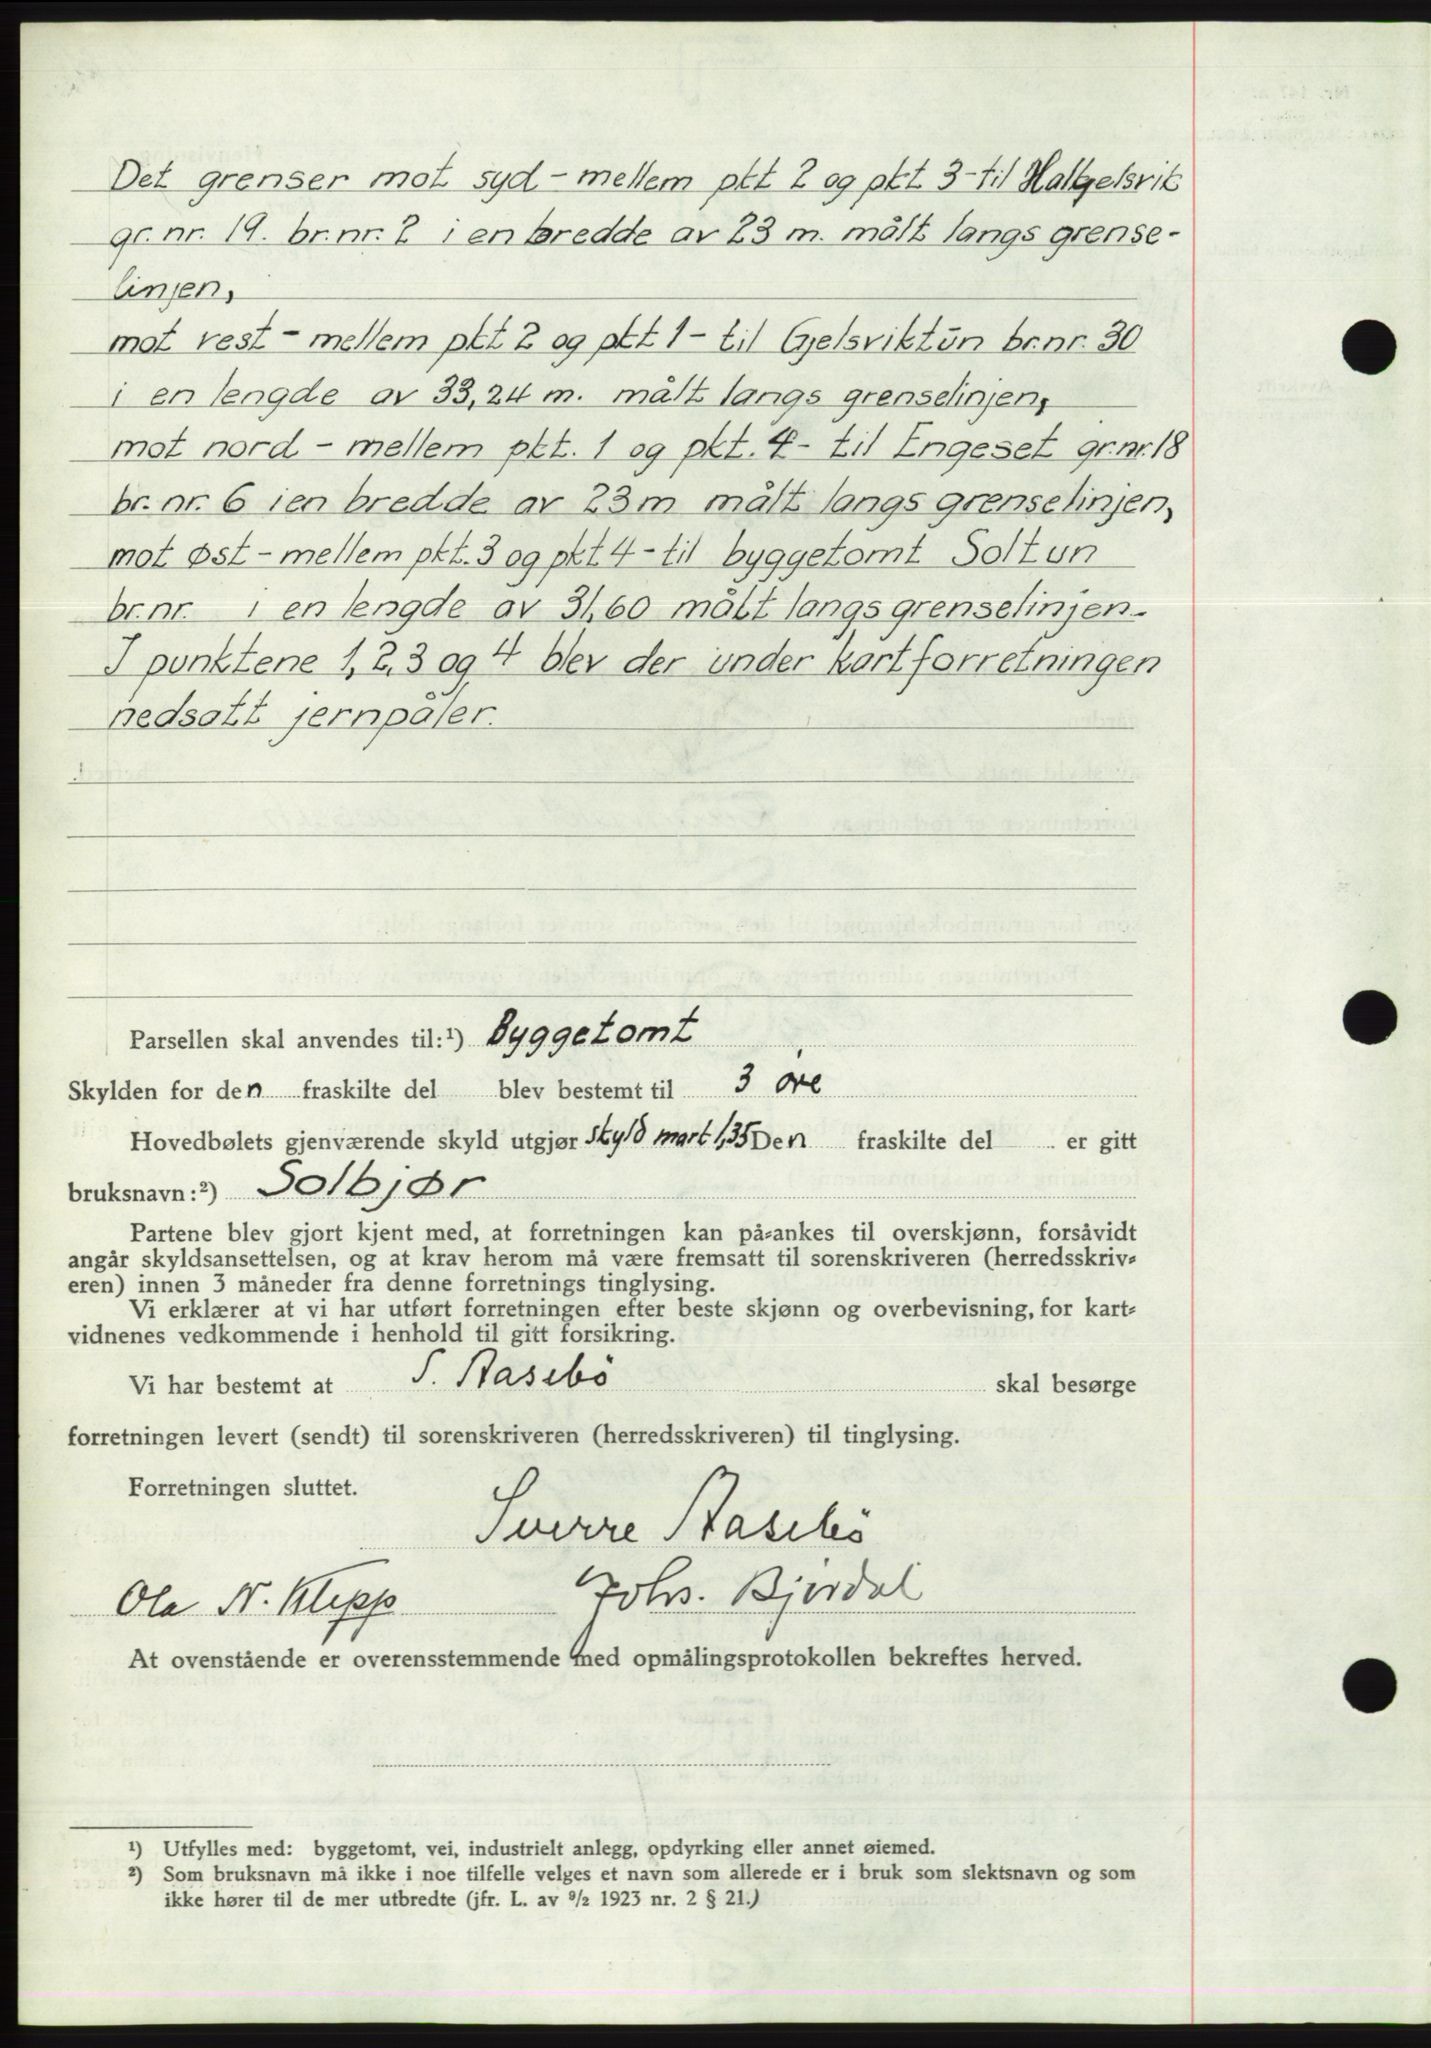 Det grenser mot syd - mellem pkt 2 og pkt 3 - til Halkjelsvik
gr. nr. 19. br. nr. 2 i en bredde av 23 m. målt langs grense-
linjen,
mot vest - mellem pkt 2 og pkt 1 - til Gjelsviktūn br. nr. 30
i en lengde av 33,24 m. målt langs grenselinjen,
mot nord - mellem pkt. 1 og pkt. 4 - til Engeset gr. nr. 18
br. nr. 6 i en bredde av 23 m målt langs grenselinjen,
mot øst - mellem pkt. 3 og pkt 4 - til byggetomt Soltun
br. nr. i en lengde av 31,60 målt langs grenselinjen.
I punktene 1, 2, 3 og 4 blev der under kartforretningen
nedsatt jernpåler.
Parsellen skal anvendes til:¹) Byggetomt
Skylden for den fraskilte del blev bestemt til 3 øre
Hovedbølets gjenværende skyld utgjør skyld mark 1,35 Den fraskilte del er gitt
bruksnavn:²) Solbjør
Partene blev gjort kjent med, at forretningen kan på-ankes til overskjønn, forsåvidt
angår skyldsansettelsen, og at krav herom må være fremsatt til sorenskriveren (herredsskriv-
eren) innen 3 måneder fra denne forretnings tinglysing.
Vi erklærer at vi har utført forretningen efter beste skjønn og overbevisning, for kart-
vidnenes vedkommende i henhold til gitt forsikring.
Vi har bestemt at S. Aasebö skal besørge
forretningen levert (sendt) til sorenskriveren (herredsskriveren) til tinglysing.
Forretningen sluttet.
Sverre Aasebö
Ola N. Klepp Johs. Bjørdal
At ovenstående er overensstemmende med opmålingsprotokollen bekreftes herved.
¹) Utfylles med: byggetomt, vei, industrielt anlegg, opdyrking eller annet øiemed.
²) Som bruksnavn må ikke i noe tilfelle velges et navn som allerede er i bruk som slektsnavn og som
ikke hører til de mer utbredte (jfr. L. av ⁹/₂ 1923 nr. 2 § 21.)